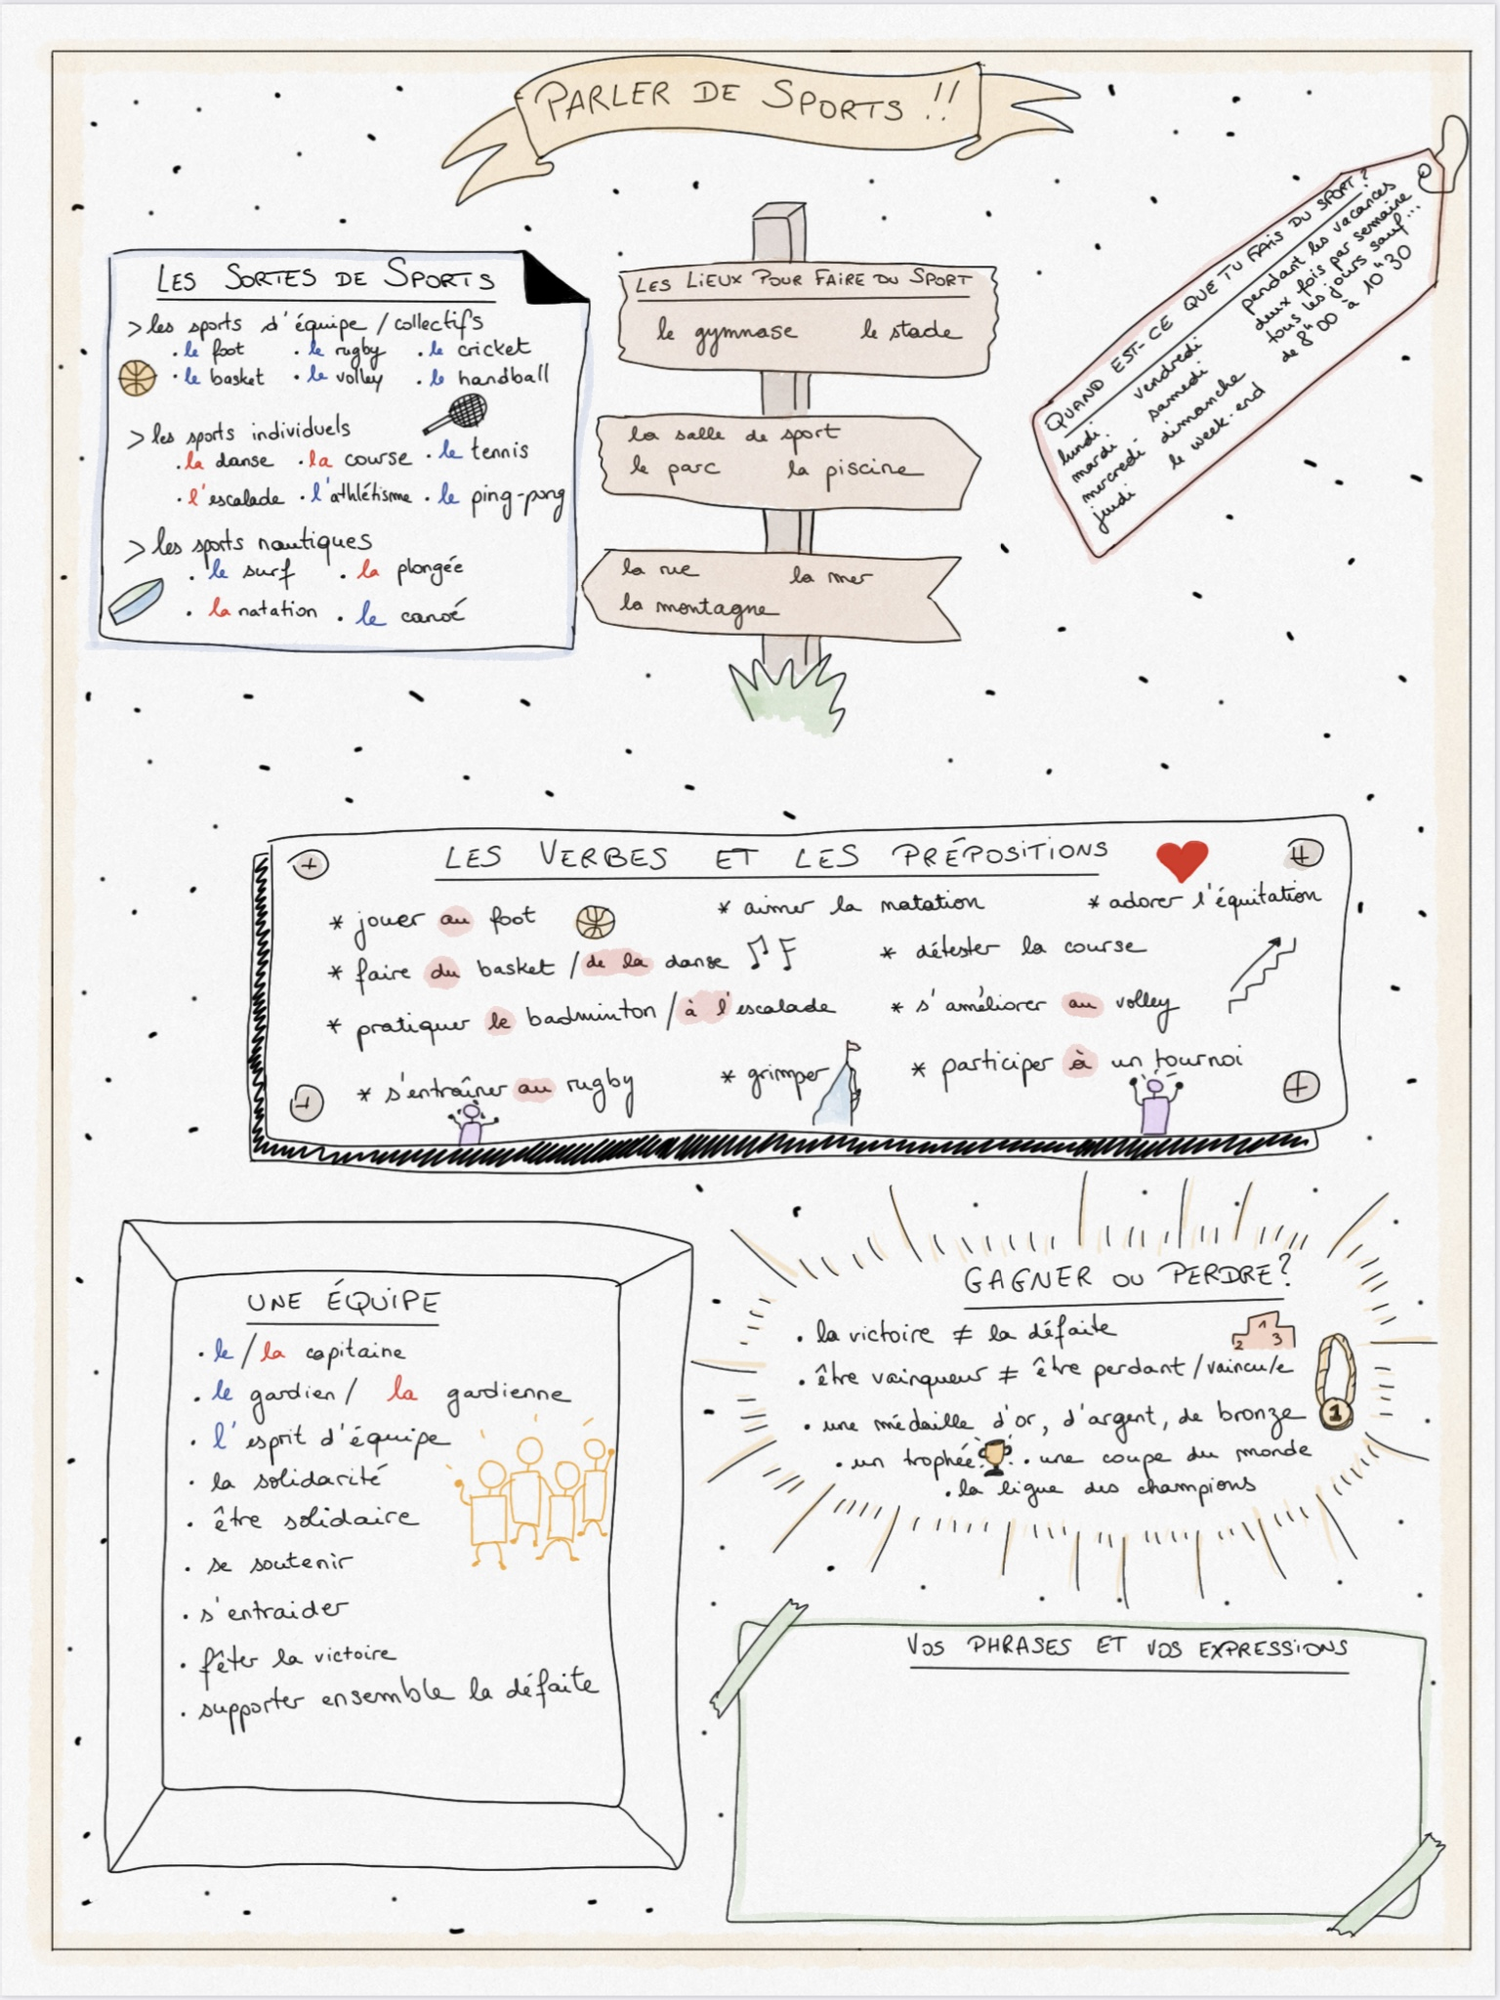 PARLER DE SPORTS !!
LES SORTES DE SPORTS
> les sports d'équipe / collectifs
· le foot · le rugby · le cricket
· le basket · le volley · le handball
> les sports individuels
· la danse · la course · le tennis
· l'escalade · l'athlétisme · le ping-pong
> les sports nautiques
· le surf · la plongée
· la natation · le canoé
LES LIEUX POUR FAIRE DU SPORT
le gymnase le stade
la salle de sport
le parc la piscine
la rue la mer
la montagne
QUAND EST-CE QUE TU FAIS DU SPORT ?
lundi
mardi
mercredi
jeudi
vendredi
samedi
dimanche
le week-end
pendant les vacances
deux fois par semaine
tous les jours sauf...
de 8h00 à 10h30
LES VERBES ET LES PRÉPOSITIONS
* jouer au foot * aimer la natation * adorer l'équitation
* faire du basket / de la danse * détester la course
* pratiquer le badminton / à l'escalade * s'améliorer au volley
* s'entraîner au rugby * grimper * participer à un tournoi
UNE ÉQUIPE
· le / la capitaine
· le gardien / la gardienne
· l'esprit d'équipe
· la solidarité
· être solidaire
· se soutenir
· s'entraider
· fêter la victoire
· supporter ensemble la défaite
GAGNER OU PERDRE ?
· la victoire ≠ la défaite
1
2 3
· être vainqueur ≠ être perdant / vaincu/e
· une médaille d'or, d'argent, de bronze
1
· un trophée · une coupe du monde
· la ligue des champions
VOS PHRASES ET VOS EXPRESSIONS